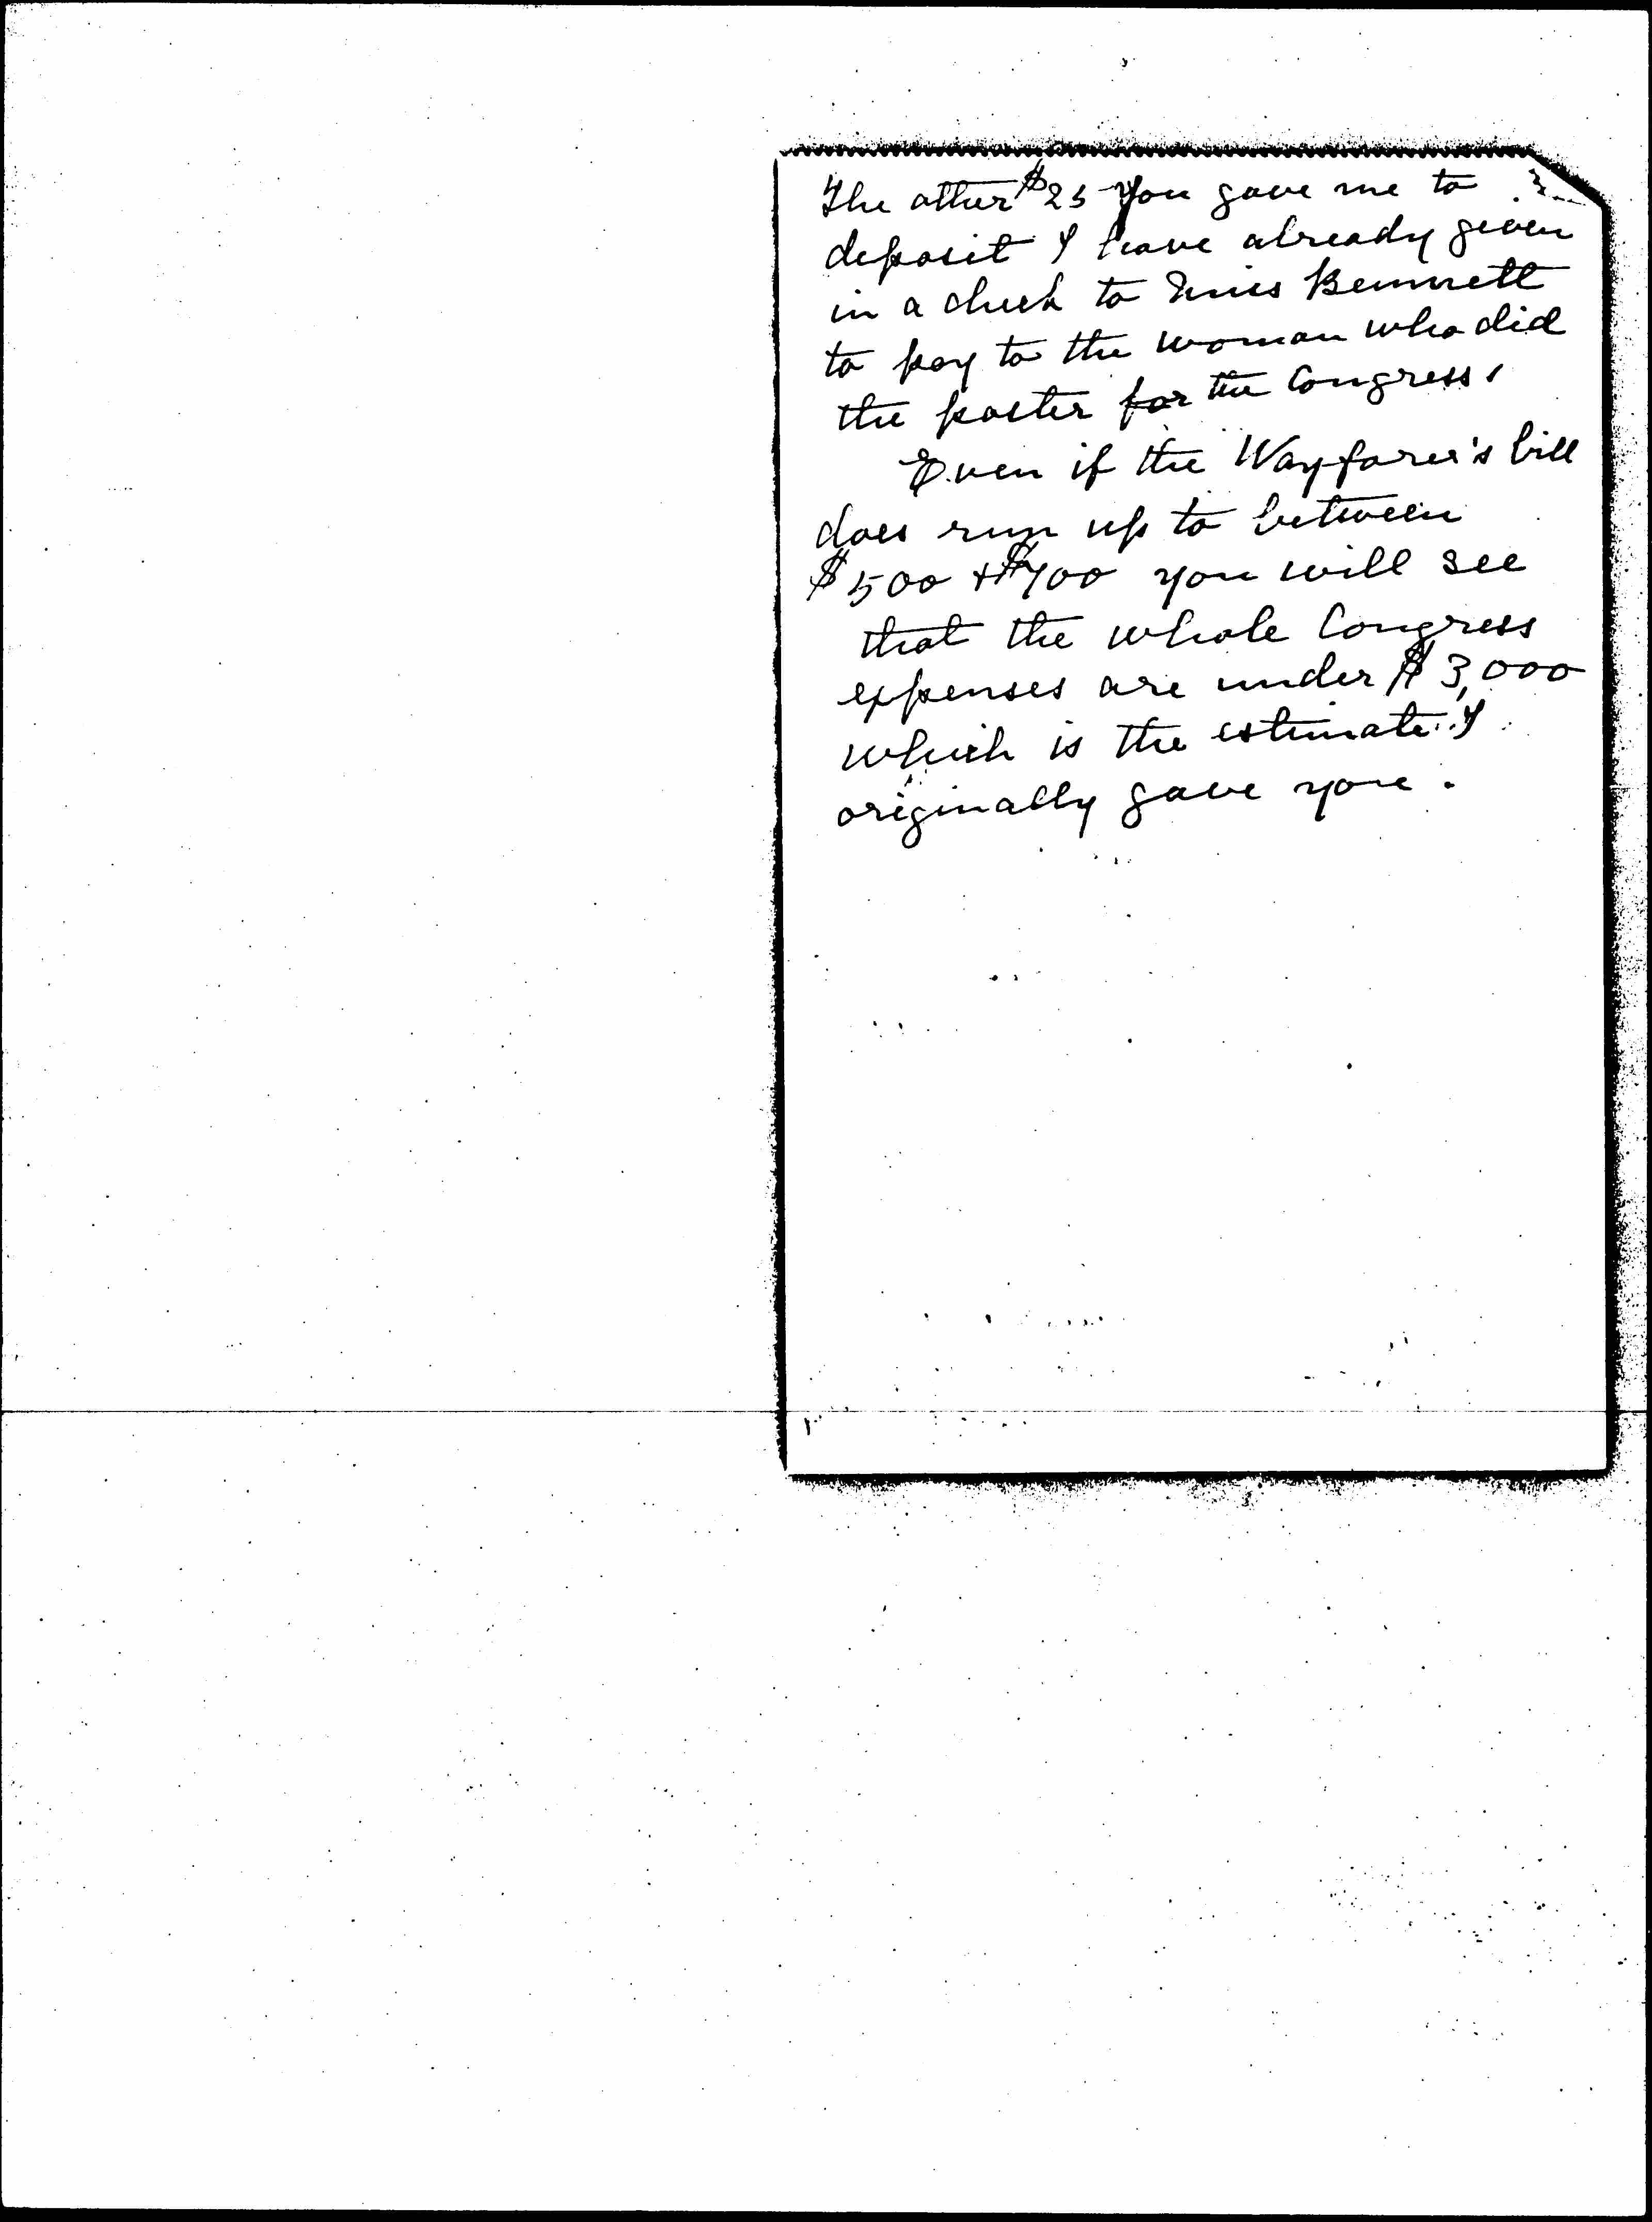 The other $25 you gave me to
deposit I have already given
in a check to Miss Bennett
to pay to the woman who did
the poster for the Congress.
Even if the Wayfarer's bill
does run up to between
$500 + $700 you will see
that the whole Congress
expenses are under $3,000
which is the estimate I
originally gave you.